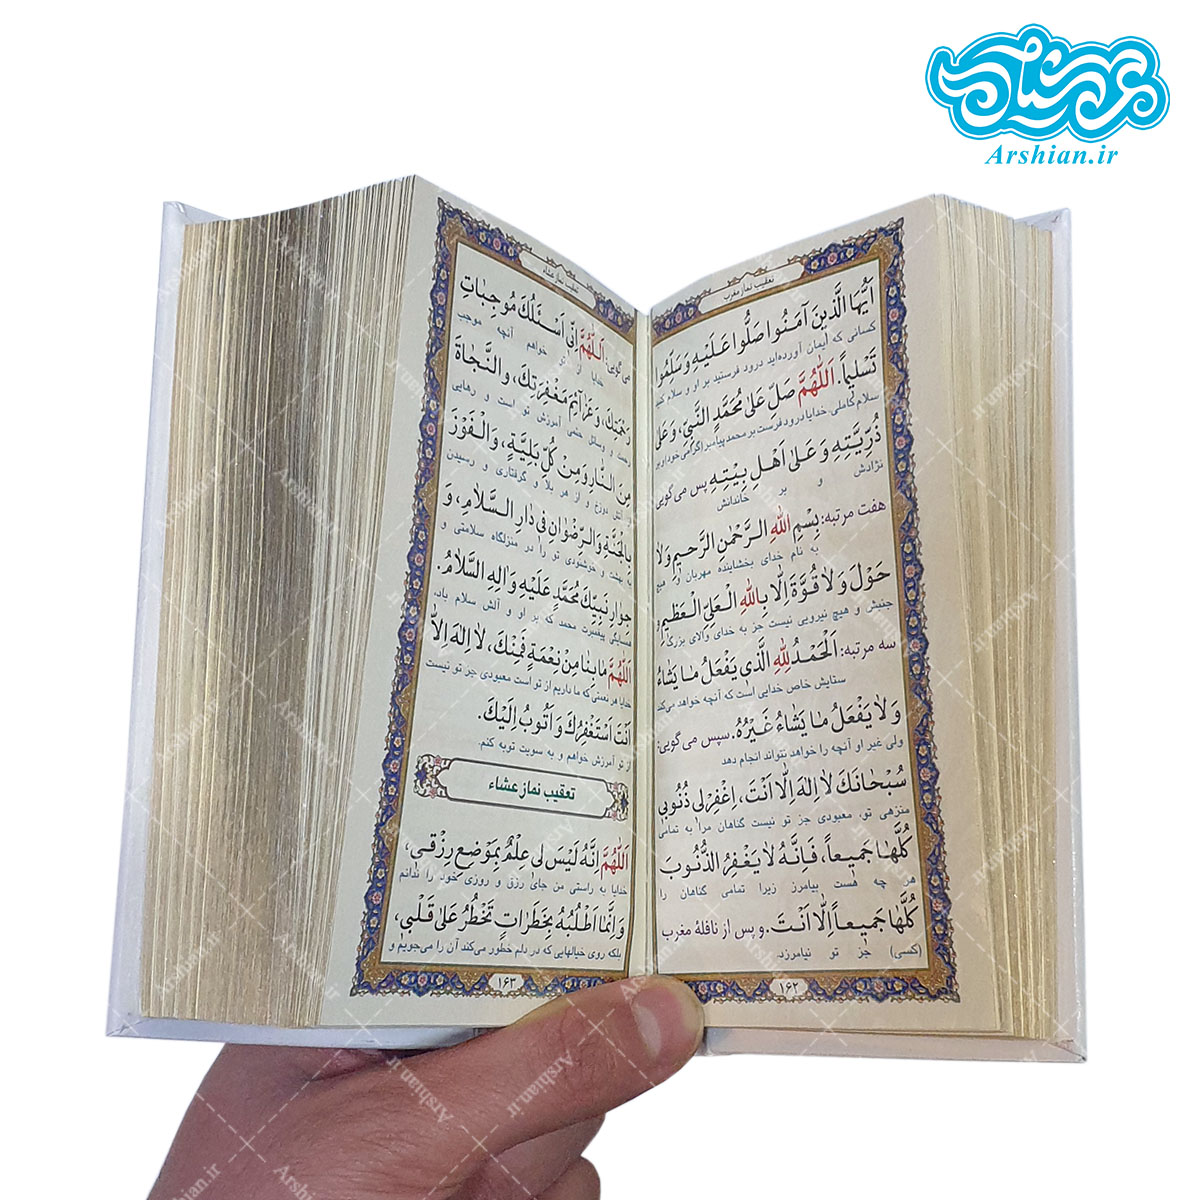 عرشیان
Arshian.ir
تعقیب نماز مغرب
اَيُّهَا الَّذينَ آمَنُوا صَلُّوا عَلَيْهِ وَ سَلِّمُوا
کسانی که ایمان آورده‌اید درود فرستید بر او و سلام کنید
تَسْليماً. اَللّٰهُمَّ صَلِّ عَلىٰ مُحَمَّدٍ النَّبِيِّ، وَ عَلىٰ
سلام کاملی خدایا درود فرست بر محمد پیامبر (گرامی خود) و بر
ذُرِّيَّتِهِ وَ عَلىٰ اَهْلِ بِيْتِهِ پس می‌گویی
نژادش و بر خاندانش
هفت مرتبه: بِسْمِ اللّٰهِ الرَّحْمٰنِ الرَّحيمِ وَ لاٰ
به نام خدای بخشاینده مهربان و هیچ
حَوْلَ وَ لاٰ قُوَّةَ اِلّاٰ بِاللّٰهِ الْعَلِيِّ الْعَظيمِ و
جنبش و هیچ نیرویی نیست جز به خدای والای بزرگ
سه مرتبه: اَلْحَمْدُ لِلّٰهِ الَّذي يَفْعَلُ مٰا يَشٰاءُ
ستایش خاص خدایی است که آنچه خواهد می‌کند
وَ لاٰ يَفْعَلُ مٰا يَشٰاءُ غَيْرُهُ. سپس می گویی:
ولی غیر او آنچه را خواهد نتواند انجام دهد
سُبْحٰانَكَ لاٰ اِلٰهَ اِلّاٰ اَنْتَ، اِغْفِرْ لي ذُنُوبي
منزهی تو، معبودی جز تو نیست گناهان مرا به تمامی
كُلَّهٰا جَميعاً، فَاِنَّهُ لاٰ يَغْفِرُ الذُّنُوبَ
هر چه هست بیامرز زیرا تمامی گناهان را
كُلَّهٰا جَميعاً اِلّاٰ اَنْتَ. و پس از نافلهٔ مغرب
(کسی) جز تو نیامرزد.
۱۶۲
تعقیب نماز عشاء
می گویی: اَللّٰهُمَّ اِنّي اَسْئَلُكَ مُوجِبٰاتِ
خدایا از تو خواهم آنچه موجب
رَحْمَتِكَ، وَ عَزٰآئِمَ مَغْفِرَتِكَ، وَ النَّجٰاةَ
رحمت و وسائل حتمی آمرزش تو است و رهایی
مِنَ النّٰارِ وَ مِنْ كُلِّ بَلِيَّةٍ، وَ الْفَوْزَ
دوزخ و از هر بلا و گرفتاری و رسیدن
بِالْجَنَّةِ وَ الرِّضْوٰانِ في دٰارِ السَّلاٰمِ، وَ
بهشت و خوشنودی تو را در منزلگاه سلامتی و
جِوٰارِ نَبِيِّكَ مُحَمَّدٍ عَلَيْهِ وَ اٰلِهِ السَّلاٰمُ.
همسایگی پیغمبرت محمد که بر او و آلش سلام باد.
اَللّٰهُمَّ مٰا بِنٰا مِنْ نِعْمَةٍ فَمِنْكَ، لاٰ اِلٰهَ اِلّاٰ
خدایا هر نعمتی که ما داریم از تو است معبودی جز تو نیست
اَنْتَ اَسْتَغْفِرُكَ وَ اَتُوبُ اِلَيْكَ.
از تو آمرزش خواهم و به سویت توبه کنم.
تعقیب نماز عشاء
اَللّٰهُمَّ اِنَّهُ لَيْسَ لي عِلْمٌ بِمَوْضِعِ رِزْقي،
خدایا به راستی من جای رزق و روزی خود را ندانم
وَ اِنَّمٰا اَطْلُبُهُ بِخَطَرٰاتٍ تَخْطُرُ عَلىٰ قَلْبي،
بلکه روی خیالهایی که در دلم خطور می‌کند آن را می‌جویم و
۱۶۳